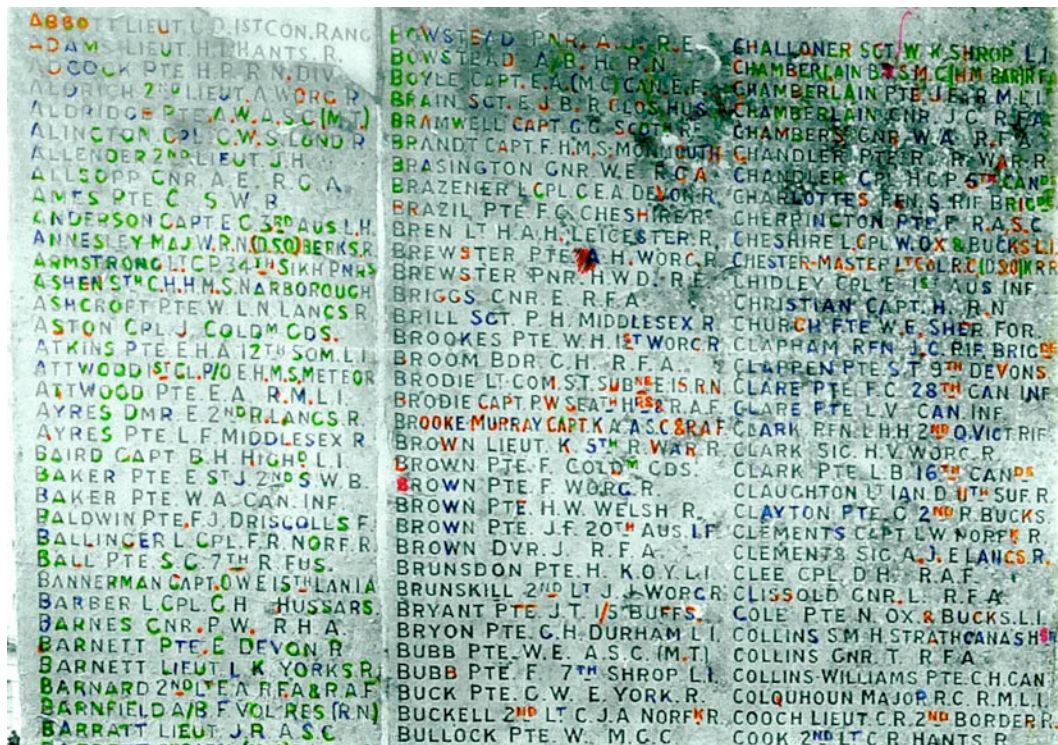 ABBOTT LIEUT. C.D. 1ST CON. RANG
ADAMS LIEUT. H.I. HANTS. R.
ADCOCK PTE H.P. R.N. DIV.
ALDRICH 2ND LIEUT. A. WORC. R.
ALDRIDGE PTE. A.W. A.S.C. (M.T.)
ALINGTON CPL. C.W.S. LOND R
ALLENDER 2ND LIEUT. J.H.
ALLSOPP GNR A.E. R.G.A.
AMES PTE C. S.W.B.
ANDERSON CAPT E.C. 3RD AUS. L.H.
ANNESLEY MAJ. W.R.N. (D.S.O) BERKS. R.
ARMSTRONG LT C.P. 34TH SIKH PNRS
ASHEN STR C.H. H.M.S. NARBOROUGH
ASHCROFT PTE. W. L.N. LANCS. R
ASTON CPL. J. COLDM GDS.
ATKINS PTE. E.H.A. 12TH SOM. L.I.
ATTWOOD 1ST CL. P/O E. H.M.S. METEOR
ATTWOOD PTE. E.A. R.M.L.I.
AYRES DMR. E. 2ND R. LANCS. R
AYRES PTE. L.F. MIDDLESEX R
BAIRD CAPT. B.H. HIGHD L.I.
BAKER PTE E ST J. 2ND S.W.B.
BAKER PTE W.A. CAN. INF.
BALDWIN PTE. F.J. DRISCOLLS F.
BALLINGER L. CPL. F.R. NORF. R
BALL PTE. S.C. 7TH R. FUS.
BANNERMAN CAPT. O.W.E 15TH LAN I.A
BARBER L.CPL. C.H. HUSSARS.
BARNES GNR. P.W. R.H.A
BARNETT PTE. E. DEVON R
BARNETT LIEUT. L.K. YORKS. R.
BARNARD 2ND LT E.A. R.F.A & R.A.F
BARNFIELD A/B. F. VOL. RES (R.N)
BARRATT LIEUT J.R. A.S.C
BOWSTEAD PNR. A.J. R.E.
BOWSTEAD A/B. H. R.N.
BOYLE CAPT. E.A. (M.C) CAN. E.F.
BRAIN SCT. E.J.B. R. GLOS. HUS
BRAMWELL CAPT. G.G. SCOT. RF.
BRANDT CAPT. F. H.M.S. MONMOUTH
BRASINGTON GNR. W.E. R.G.A
BRAZENER L.CPL. C.E.A DEVON. R
BRAZIL PTE F.G. CHESHIRE R.
BREN LT H.A.H. LEICESTER R.
BREWSTER PTE A.H. WORC. R.
BREWSTER PNR. H.W.D. R.E.
BRIGGS GNR E. R.F.A.
BRILL SGT. P.H. MIDDLESEX R.
BROOKES PTE. W.H. 1ST WORC. R
BROOM BDR. C.H. R.F.A.
BRODIE LT. COM. S.T. SUBNE E15. R.N.
BRODIE CAPT. P.W. SEATH HRS & R.A.F.
BROOKE-MURRAY CAPT. K.A. A.S.C & R.A.F.
BROWN LIEUT. K. 5TH R. WAR. R.
BROWN PTE. F. COLDM GDS.
BROWN PTE. F. WORC. R.
BROWN PTE. H.W. WELSH R.
BROWN PTE. J.F. 20TH AUS. I.F
BROWN DVR. J. R.F.A.
BRUNSDON PTE. H. K.O.Y.L.I.
BRUNSKILL 2ND LT J.J. WORC. R
BRYANT PTE. J.T. 1/5 BUFFS.
BRYON PTE. G.H. DURHAM L.I.
BUBB PTE. W.E. A.S.C. (M.T.)
BUBB PTE. F. 7TH SHROP L.I.
BUCK PTE. G.W. E. YORK. R.
BUCKELL 2ND LT C.J.A NORFK R.
BULLOCK PTE. W. M.G.C
CHALLONER SGT. W.K. SHROP L.I.
CHAMBERLAIN B.S.M. C.H. M. BAR R.F.A
CHAMBERLAIN PTE. J.E. R.M.L.I.
CHAMBERLAIN GNR. J.C. R.F.A
CHAMBERS GNR W.A. R.F.A
CHANDLER PTE R. R. WAR. R.
CHANDLER CPL H.G.P. 5TH CANDS
CHARLOTTES RFN. S. RIF BRIGDE
CHERRINGTON PTE. F. R.A.S.C.
CHESHIRE L.CPL. W. OX & BUCKS. L.I.
CHESTER-MASTER LT COL. R.C. (D.S.O) K.R.R
CHIDLEY CPL. E. 1ST AUS INF.
CHRISTIAN CAPT. H. R.N
CHURCH PTE W.E. SHER FOR.
CLAPHAM RFN. J.C. RIF. BRIGDE
CLAPPEN PTE. S.T. 9TH DEVONS.
CLARE PTE. F.C. 28TH CAN INF
CLARE PTE L.V. CAN. INF.
CLARK RFN. L.H.H. 2ND Q. VICT. RIF
CLARK SIG. H.V. WORC. R.
CLARK PTE. L.B. 16TH CANDS
CLAUGHTON LT IAN. D. 11TH SUF. R
CLAYTON PTE. C. 2ND R. BUCKS.
CLEMENTS CAPT. L.W. NORFK R
CLEMENTS SIG. A.J. E. LANCS. R.
CLEE CPL. D.H. R.A.F.
CLISSOLD GNR. L. R.F.A
COLE PTE. N. OX. & BUCKS. L.I.
COLLINS S.M. H. STRATHCANAS HSE
COLLINS GNR. T. R.F.A.
COLLINS-WILLIAMS PTE. C.H. CAN.
COLQUHOUN MAJOR. R.C. R.M.L.I
COOCH LIEUT. C.R. 2ND BORDER R.
COOK 2ND LT C.R. HANTS. R.